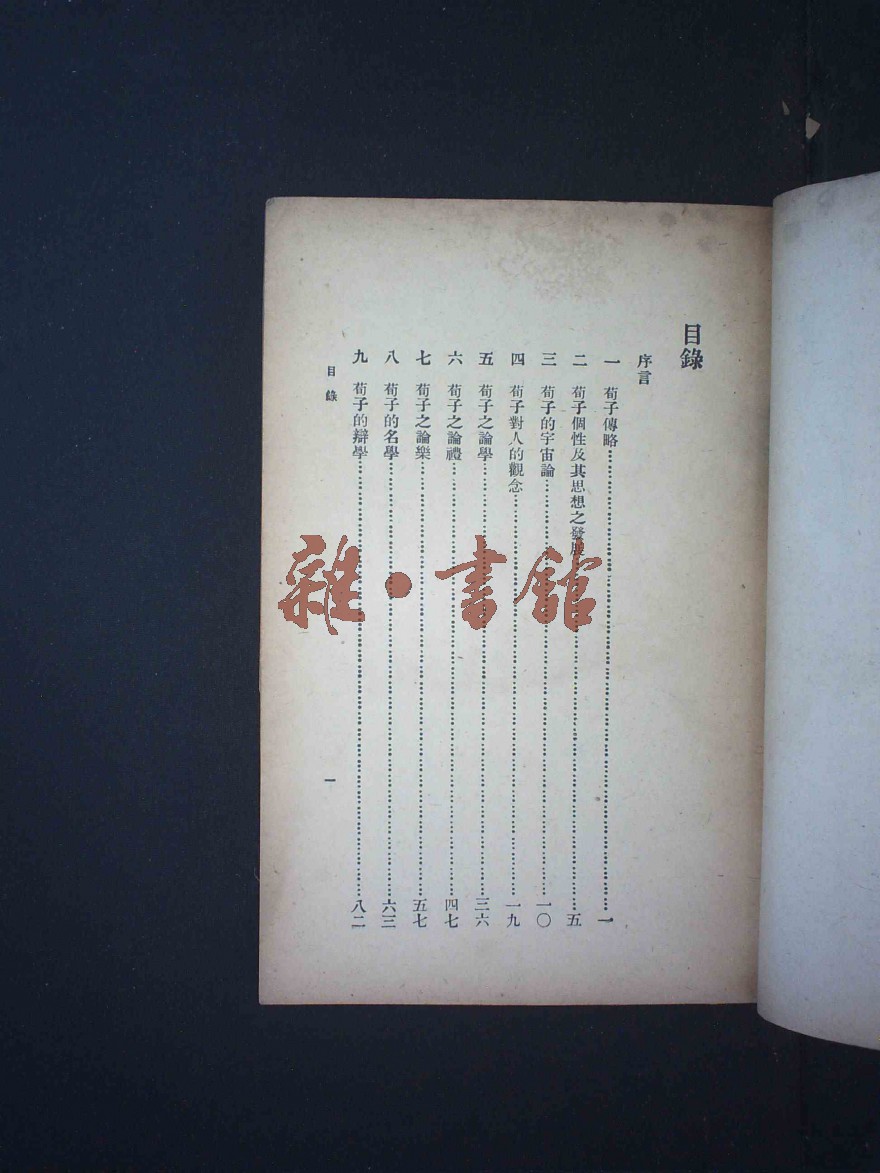 目錄
序言
一 荀子傳略……一
二 荀子個性及其思想之發展……五
三 荀子的宇宙論……一〇
四 荀子對人的觀念……一九
五 荀子之論學……三六
六 荀子之論禮……四七
七 荀子之論樂……五七
八 荀子的名學……六三
九 荀子的辯學……八二
目錄
一
雜·書館